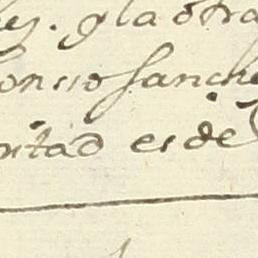 y la otra
onsso Sanche
ntad es de